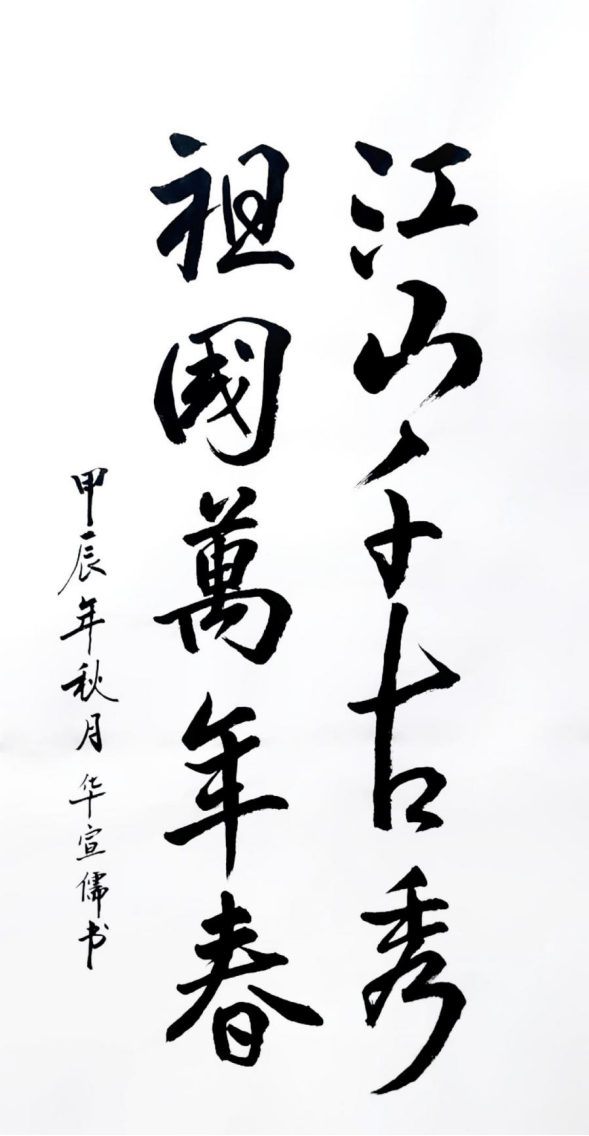 江山千古秀
祖國萬年春
甲辰年秋月华宣儒书